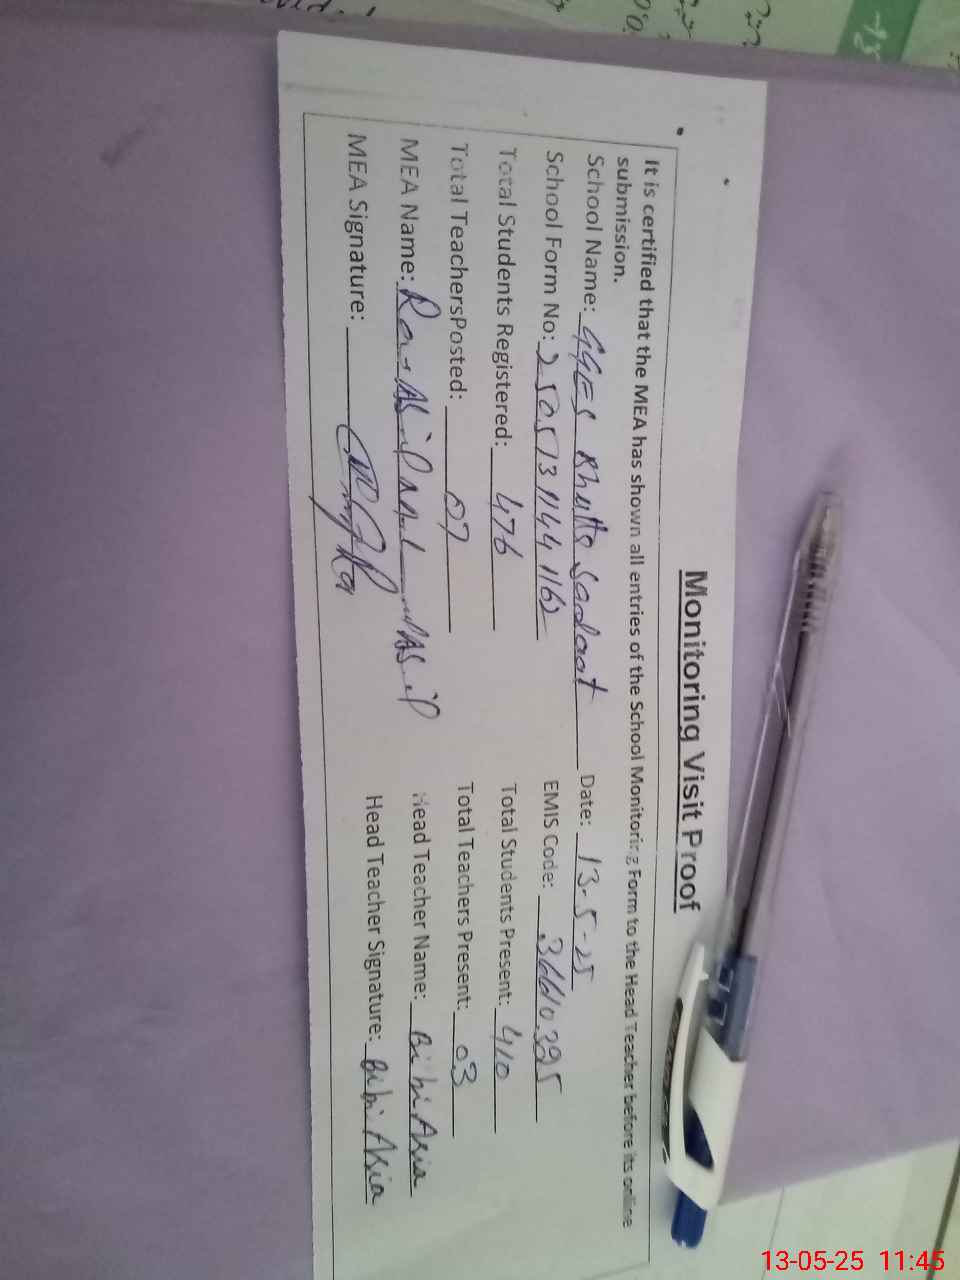 Monitoring Visit Proof
It is certified that the MEA has shown all entries of the School Monitoring Form to the Head Teacher before its online
submission.
School Name: GGES Bhutto Sadaat Date: 13-5-25
School Form No: 25051311441162 EMIS Code: 36610395
Total Students Registered: 476 Total Students Present: 410
Total TeachersPosted: 07 Total Teachers Present: 03
MEA Name: Head Teacher Name: Bibi Asia
MEA Signature: Head Teacher Signature: Bibi Asia
13-05-25 11:45